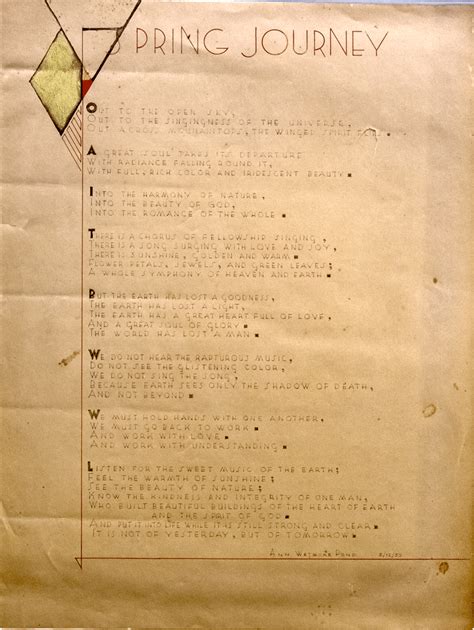 SPRING JOURNEY
OUT TO THE OPEN SKY,
OUT TO THE SINGINGNESS OF THE UNIVERSE,
OUT ACROSS MOUNTAINTOPS, THE WINGED SPIRIT GOES.
A GREAT SOUL TAKES ITS DEPARTURE
WITH RADIANCE FALLING ROUND IT,
WITH FULL, RICH COLOR AND IRIDESCENT BEAUTY.
INTO THE HARMONY OF NATURE,
INTO THE BEAUTY OF GOD,
INTO THE ROMANCE OF THE WHOLE.
THERE IS A CHORUS OF FELLOWSHIP SINGING,
THERE IS A SONG SURGING WITH LOVE AND JOY,
THERE IS SUNSHINE, GOLDEN AND WARM.
FLOWER PETALS, JEWELS, AND GREEN LEAVES;
A WHOLE SYMPHONY OF HEAVEN AND EARTH.
BUT THE EARTH HAS LOST A GOODNESS,
THE EARTH HAS LOST A LIGHT,
THE EARTH HAS A GREAT HEART FULL OF LOVE,
AND A GREAT SOUL OF GLORY.
THE WORLD HAS LOST A MAN.
WE DO NOT HEAR THE RAPTUROUS MUSIC,
DO NOT SEE THE GLISTENING COLOR,
WE DO NOT SING THE SONG,
BECAUSE EARTH SEES ONLY THE SHADOW OF DEATH,
AND NOT BEYOND.
WE MUST HOLD HANDS WITH ONE ANOTHER,
WE MUST GO BACK TO WORK.
AND WORK WITH LOVE.
AND WORK WITH UNDERSTANDING.
LISTEN FOR THE SWEET MUSIC OF THE EARTH;
FEEL THE WARMTH OF SUNSHINE;
SEE THE BEAUTY OF NATURE;
KNOW THE KINDNESS AND INTEGRITY OF ONE MAN,
WHO BUILT BEAUTIFUL BUILDINGS OF THE HEART OF EARTH
AND THE SPIRIT OF GOD.
AND PUT IT INTO LIFE WHILE IT IS STILL STRONG AND CLEAR.
IT IS NOT OF YESTERDAY, BUT OF TOMORROW.
ANN